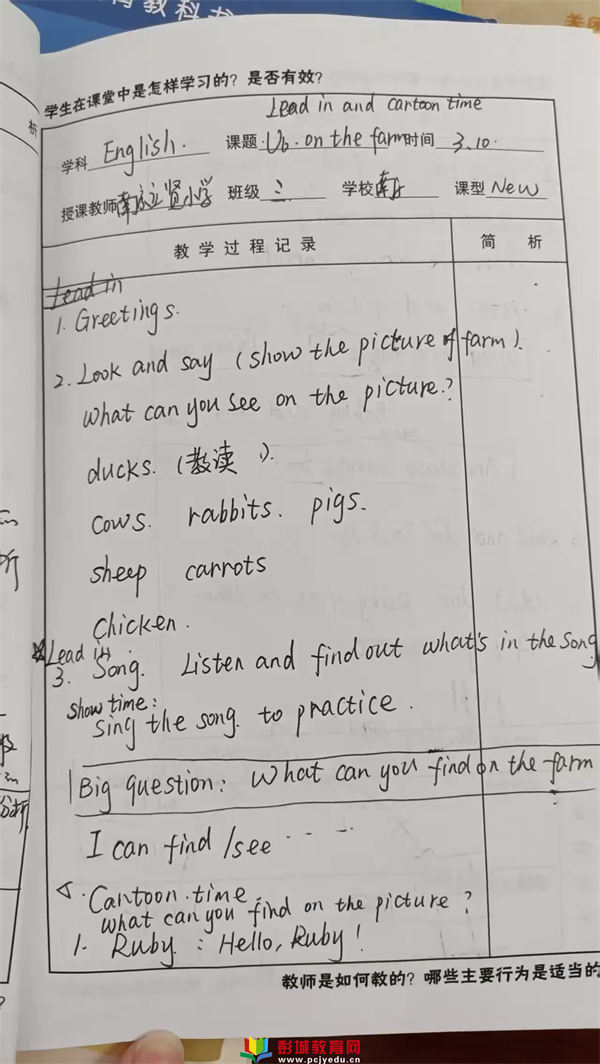 育教科书
学生在课堂中是怎样学习的？是否有效？
析
Lead in and cartoon time
学科 English. 课题 U6. on the farm 时间 3.10.
授课教师 南京立贤小学 班级 三 学校 课型 New
教学过程记录 简 析
Lead in
1. Greetings.
2. Look and say (show the picture of farm).
What can you see on the picture?
ducks. (教读).
cows. rabbits. pigs.
sheep carrots
chicken.
Lead in
3. Song. Listen and find out what's in the song
show time:
sing the song. to practice.
Big question: What can you find on the farm
I can find /see ......
Cartoon time.
What can you find on the picture?
1. Ruby: Hello, Ruby!
教师是如何教的？哪些主要行为是适当的
彭城教育网
www.pcjyedu.cn